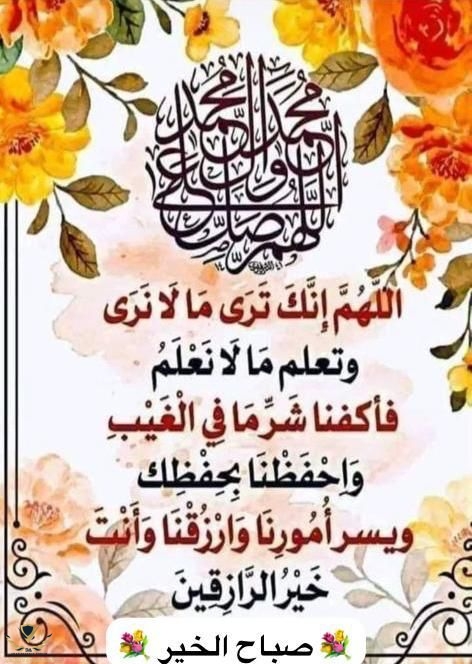 اللهم صل على محمد وآل محمد
اللَّهُمَّ إِنَّكَ تَرَى مَا لَا نَرَى
وتعلم مَا لَا نَعْلَمُ
فأكفنا شَرِّ مَا فِي الْغَيْبِ
وَاحْفَظْنَا بِحِفْظِكَ
ويسر أُمُورِنَا وَارْزُقْنَا وَأَنْتَ
خَيْرُ الرَّازِقِينَ
💐 صباح الخير 💐